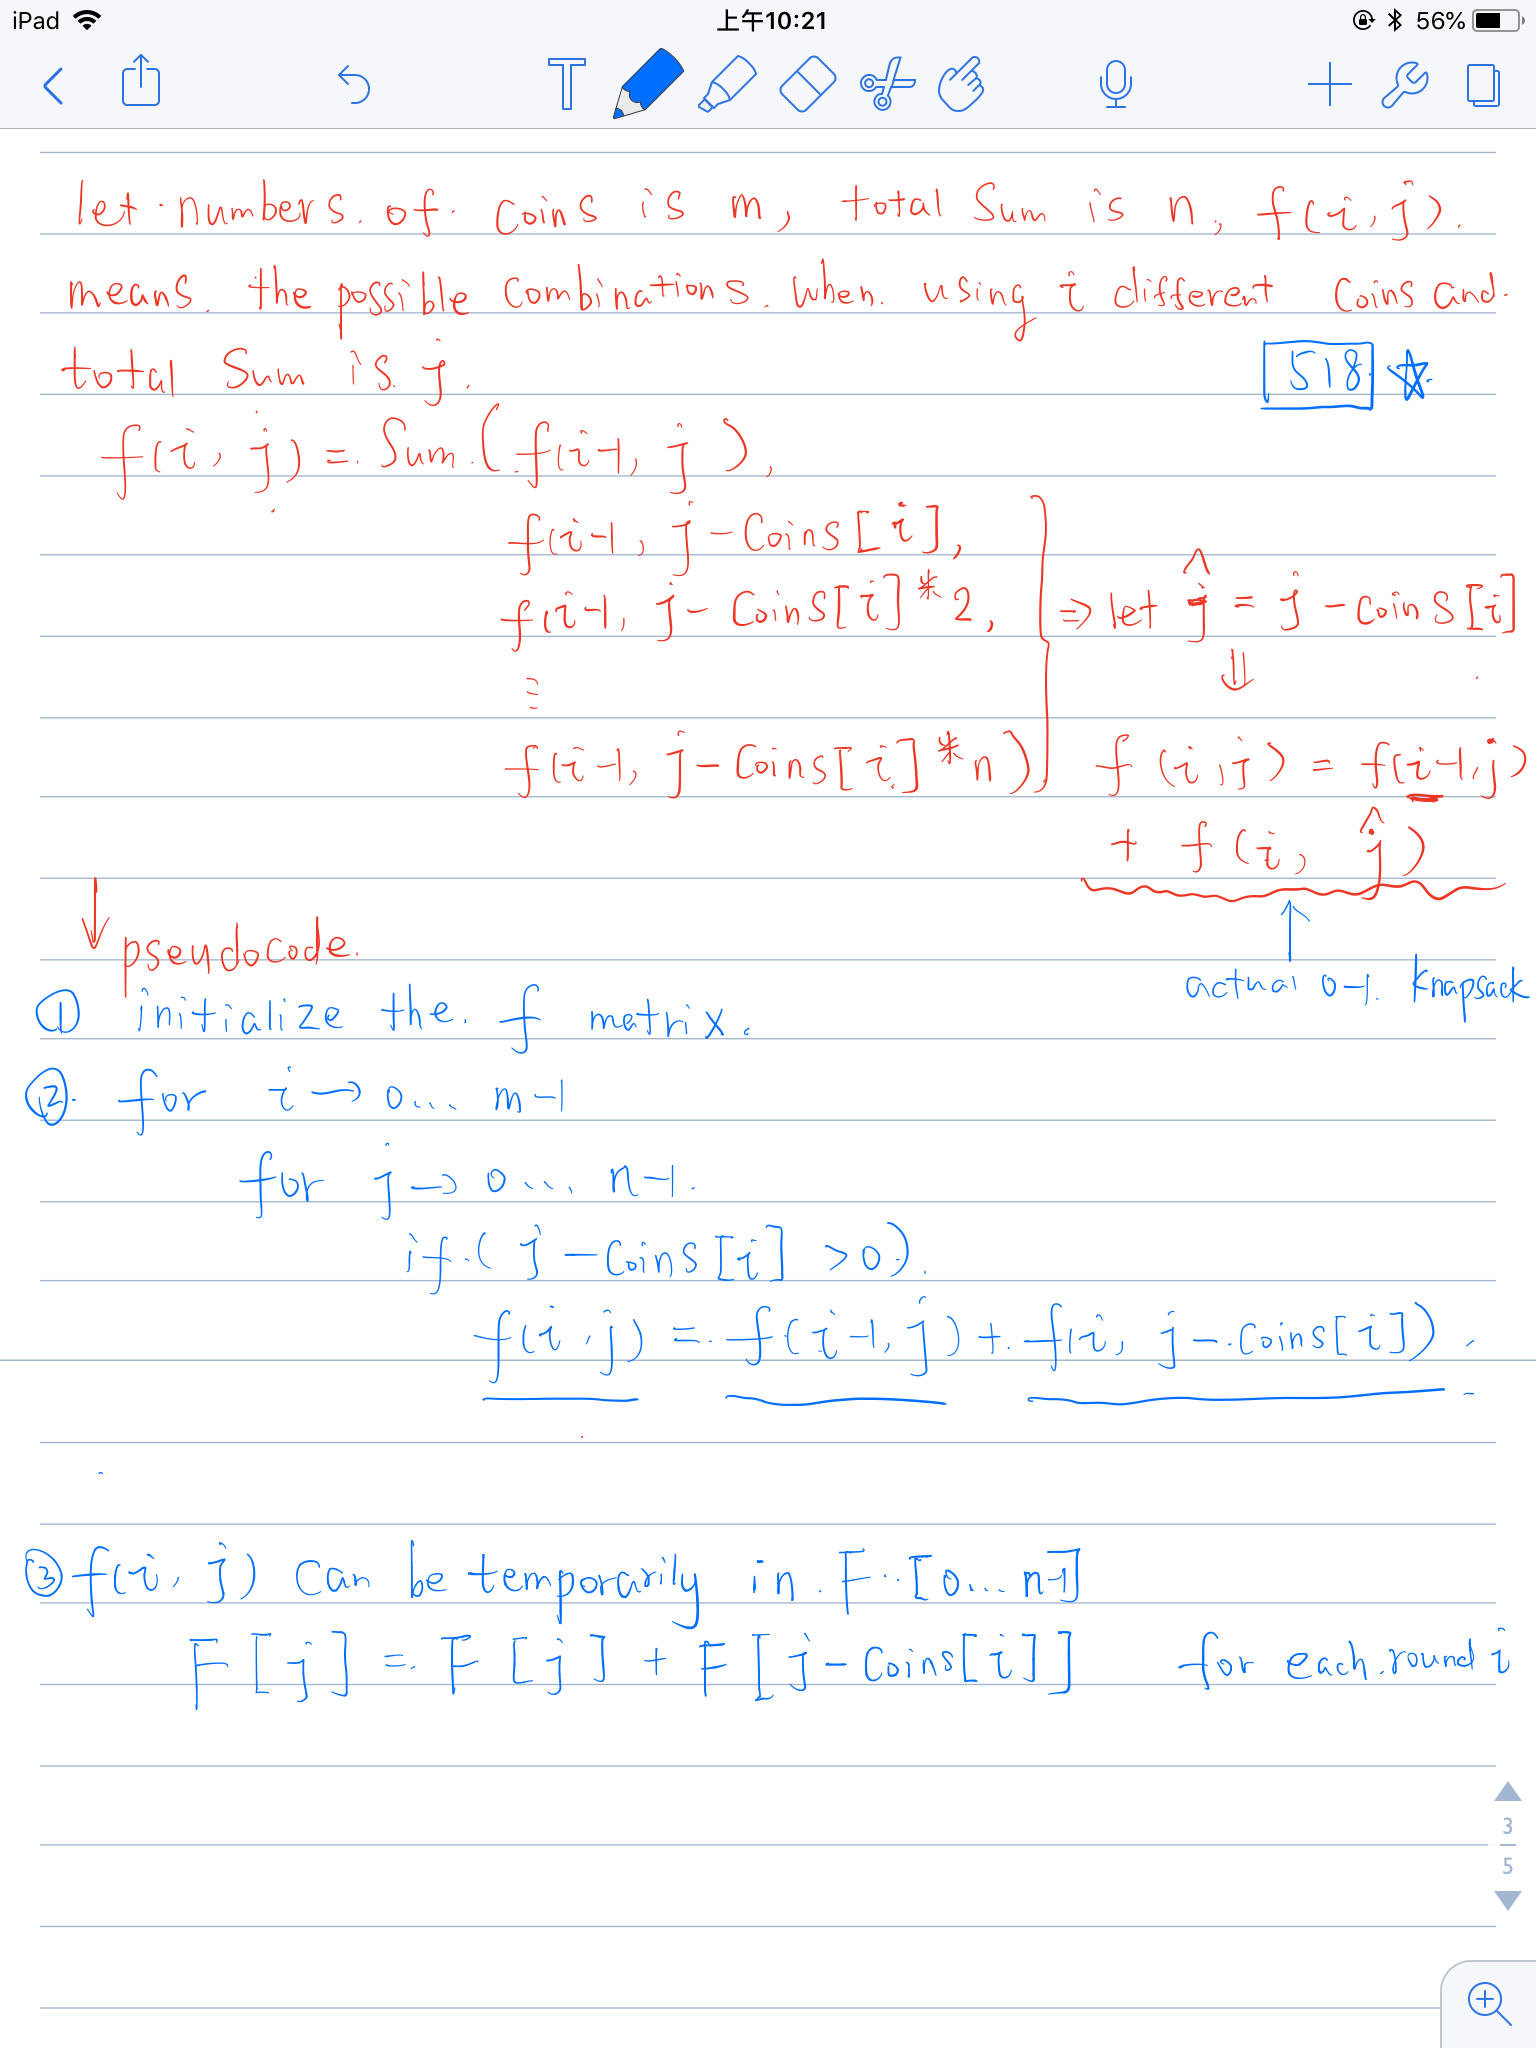 iPad 上午10:21 56%
T
let numbers of coins is m, total sum is n, f(i, j).
means the possible combinations when using i different coins and
total sum is j.
518
f(i, j) = sum (f(i-1, j),
f(i-1, j - coins[i],
f(i-1, j - coins[i] * 2,
⋮
f(i-1, j - coins[i] * n)
⇒ let ĵ = j - coins[i]
⇓
f(i, j) = f(i-1, j)
+ f(i, ĵ)
↑
actual 0-1 knapsack
↓ pseudocode.
① initialize the f matrix.
② for i → 0... m-1
for j → 0... n-1.
if (j - coins[i] > 0).
f(i, j) = f(i-1, j) + f(i, j - coins[i]).
③ f(i, j) can be temporarily in F [0... n-1]
F[j] = F[j] + F[j - coins[i]] for each round i
3
5